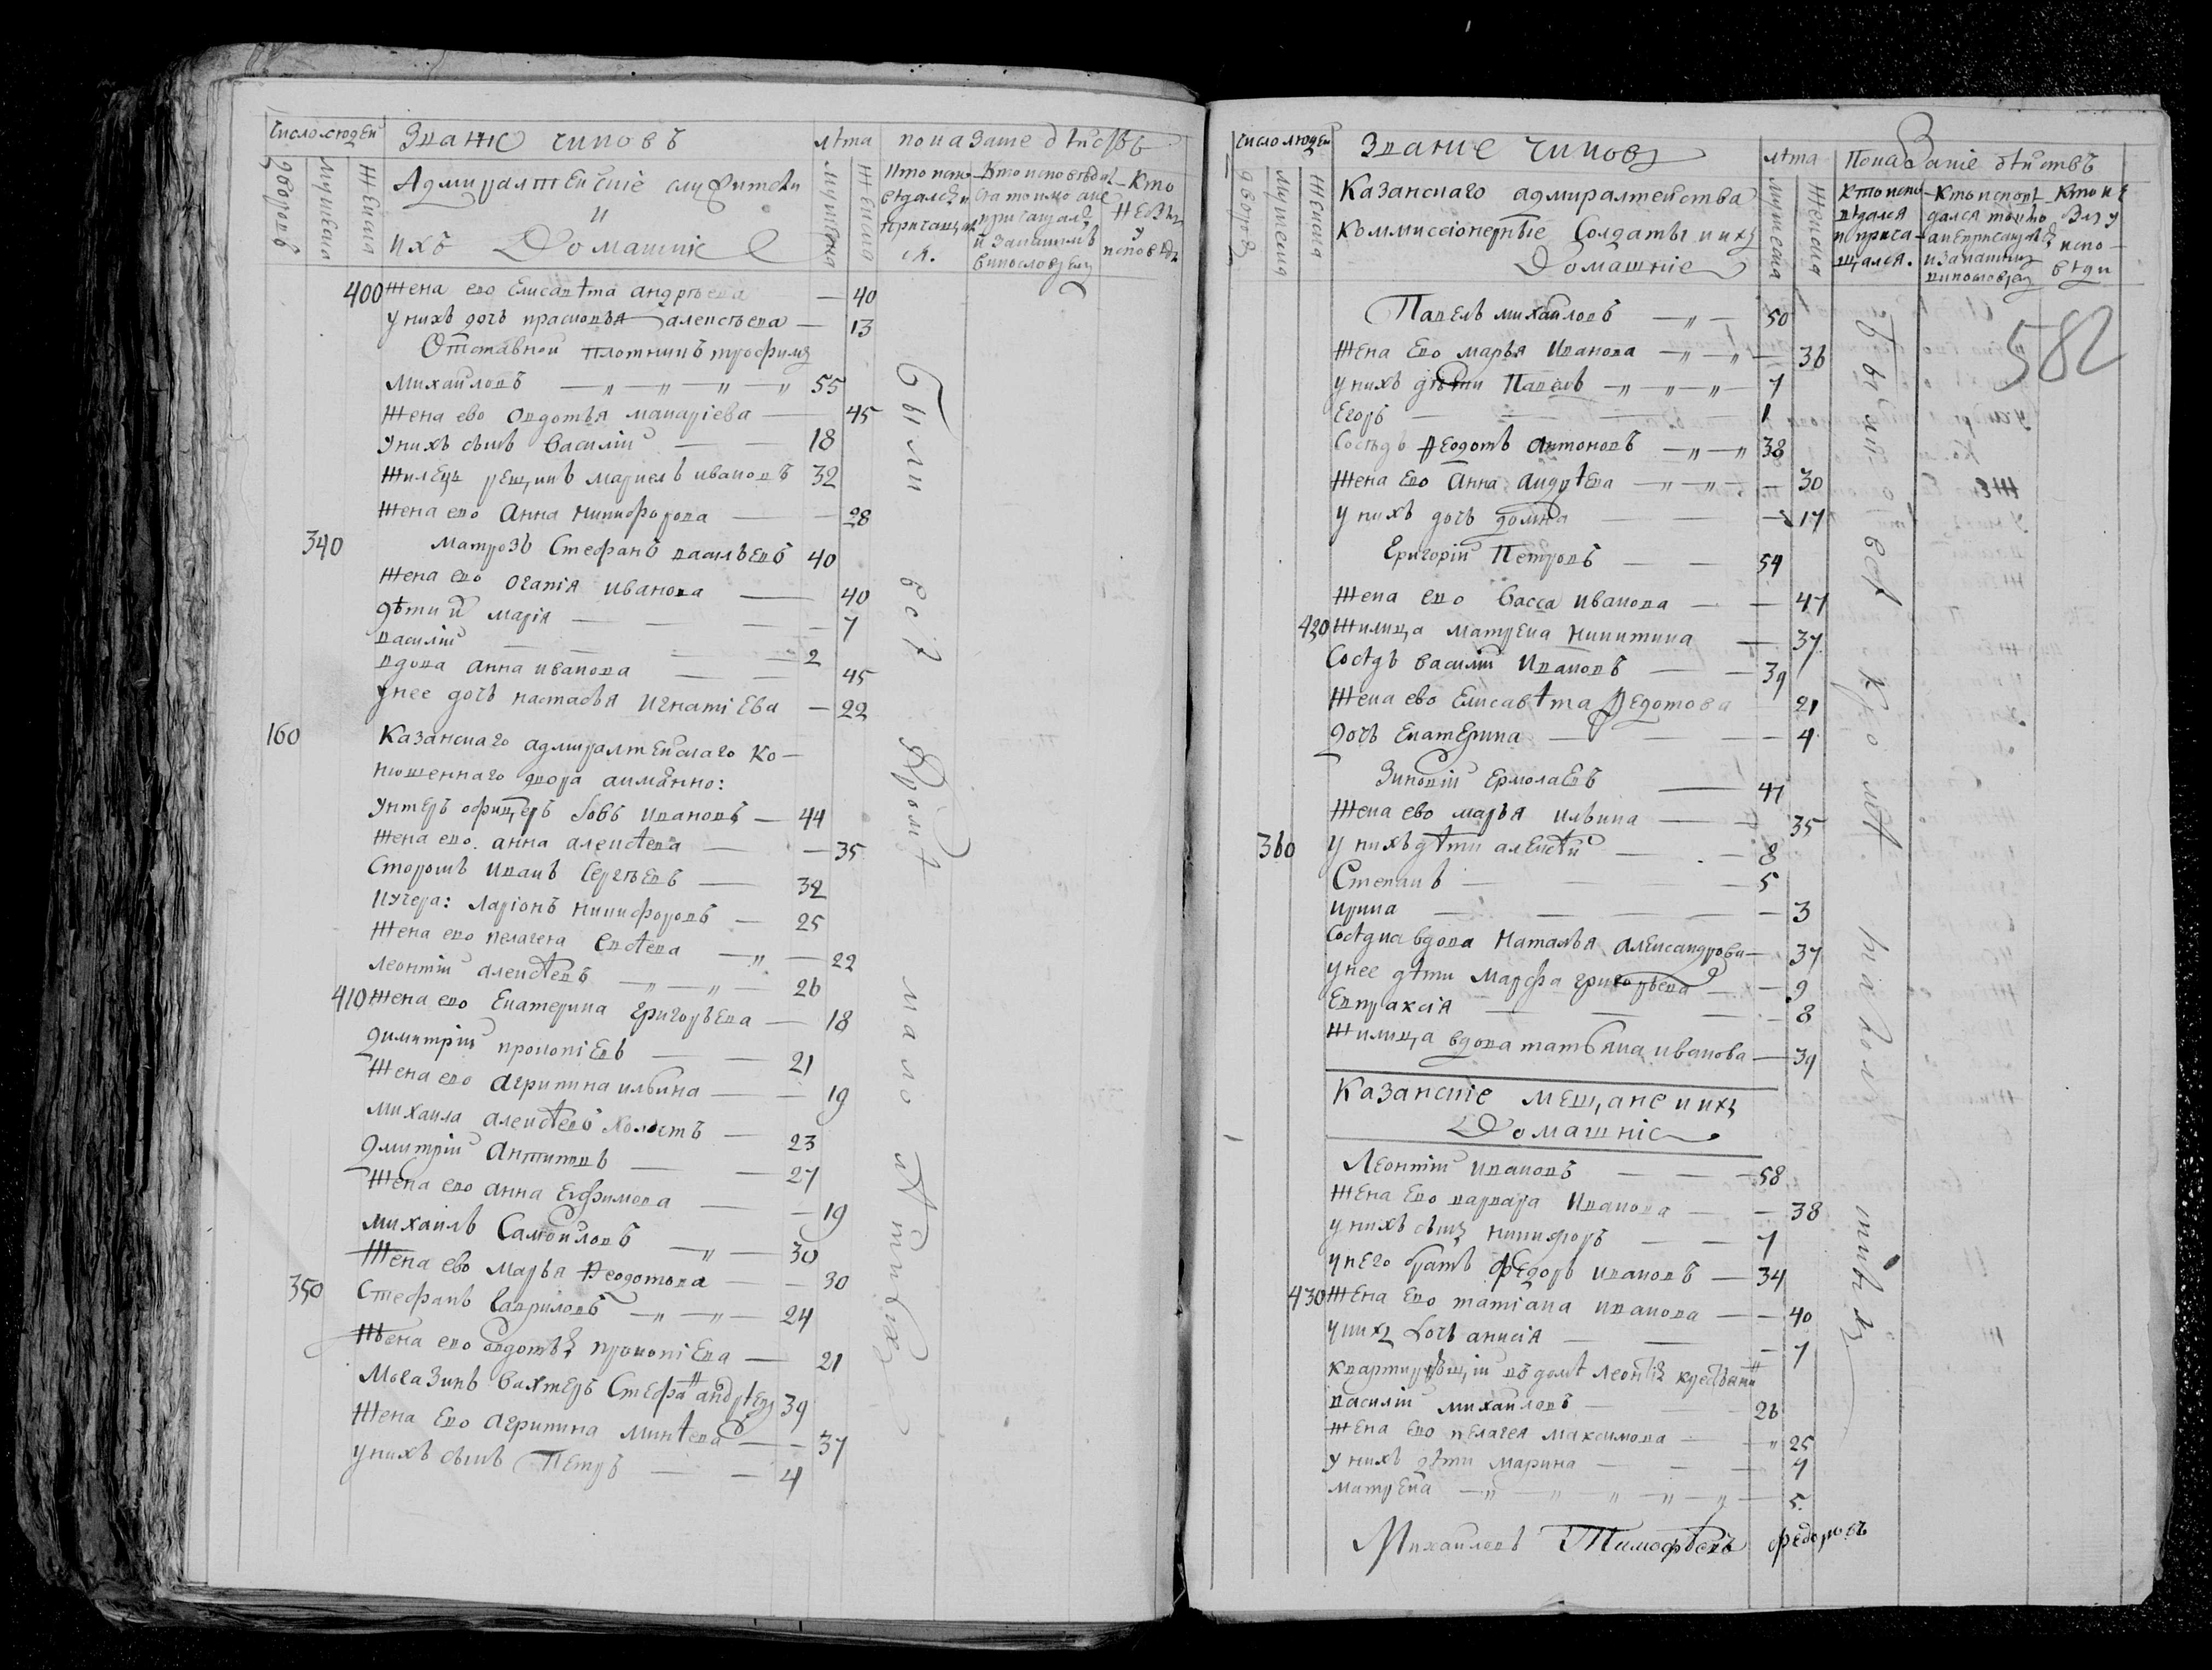 Число людей
Званіе чиновъ
лѣта
показаніе дѣйствъ
дворовъ
мужеска
женска
Адмиралтейскіе служители
и
ихъ Домашніе
мужеска
женска
Кто испо-
ведался и
причащал
ся.
Кто исповѣдал
ся токмо а не
причащалъ
и за какимъ
винословіем
Кто
не былъ
у
исповѣди
400 жена ево Елисавѣта андрѣева — 40
у нихъ дочь прасковья алексѣева — 13
Отставной плотникъ трофимъ
михайловъ — 55
жена ево Овдотья макаріева — 45
у нихъ сынъ василій — 18
жилецъ рещикъ маркелъ ивановъ 32
жена ево Анна никифорова — 28
340 матрозъ Стефанъ васильевъ 40
жена ево огапія иванова — 40
дѣти их марія — 7
василій — 2
вдова анна иванова — 45
у нее дочь настасья игнатіева — 22
160 Казанскаго адмиралтейскаго ко-
нюшеннаго двора аимянно:
Унтеръ офицеръ Iовъ ивановъ — 44
жена ево анна алексѣева — 35
Сторожъ иванъ Сергѣевъ — 32
кучера: ларіонъ никифоровъ — 25
жена ево пелагея Евсѣева — 22
леонтій алексѣевъ — 26
410 жена ево Екатерина григорьева — 18
димитрій прокопіевъ — 21
жена ево агрипина ильина — 19
михаила алексѣевъ холостъ — 23
дмитрій Антиповъ — 27
жена ево анна Ефимова — 19
михаилъ Самойловъ — 30
жена ево марья Феодотова — 30
350 Стефанъ Гавриловъ — 24
жена ево овдотья прокопіева — 21
Магазинъ вахтеръ Стефанъ андрѣевъ 39
жена Ево агрипина михѣева — 37
у нихъ сынъ Петръ — 4
были всѣ Кромѣ малолѣтныхъ
Число людей
Званіе чиновъ
лѣта
Показаніе дѣйствъ
дворовъ
мужеска
женска
Казанскаго адмиралтейства
Коммиссіонерные Солдаты и ихъ
Домашніе
мужеска
женска
Кто испо-
вѣдался
и прича-
щался.
Кто исповѣ
дался токмо
а не причащалъ
и за какимъ
винословіем
Кто не
былъ у
испо-
вѣди
582
Павелъ михайловъ — 50
жена Ево марья Иванова — 36
у нихъ дѣти Павелъ — 7
Егоръ — 1
Сосѣдъ Феодотъ Антоновъ — 38
жена Ево Анна Андрѣева — 30
у нихъ дочь домна — 17
Григорій Петровъ — 54
жена ево Васса иванова — 47
420 жилица матрена никитина — 37
Сосѣдъ василій Ивановъ — 39
жена ево Елисавѣта Федотова 21
дочь Екатерина — 4
Зиновій Ермолаевъ — 47
жена ево марья ильина — 35
360 у нихъ дѣти алексѣй — 8
Степанъ — 5
ирина — 3
Сосѣдка вдова наталья александрова — 37
у нее дѣти марфа григорьева — 9
Евпраксія — 8
жилица вдова татьяна иванова — 39
Казанскіе мещане и ихъ
Домашніе
Леонтій ивановъ — 58
жена Ево варвара Иванова — 38
у нихъ сынъ никифоръ — 7
у него братъ федоръ ивановъ — 34
430 жена Ево татіана иванова — 40
у нихъ дочь анисія — 7
василій михайловъ — 26
жена Ево пелагея максимова — 25
у нихъ дѣти марина — 7
матрена — 5.
были всѣ Кромѣ малолѣтныхъ
Михайловъ Тимофѣевъ федоровъ